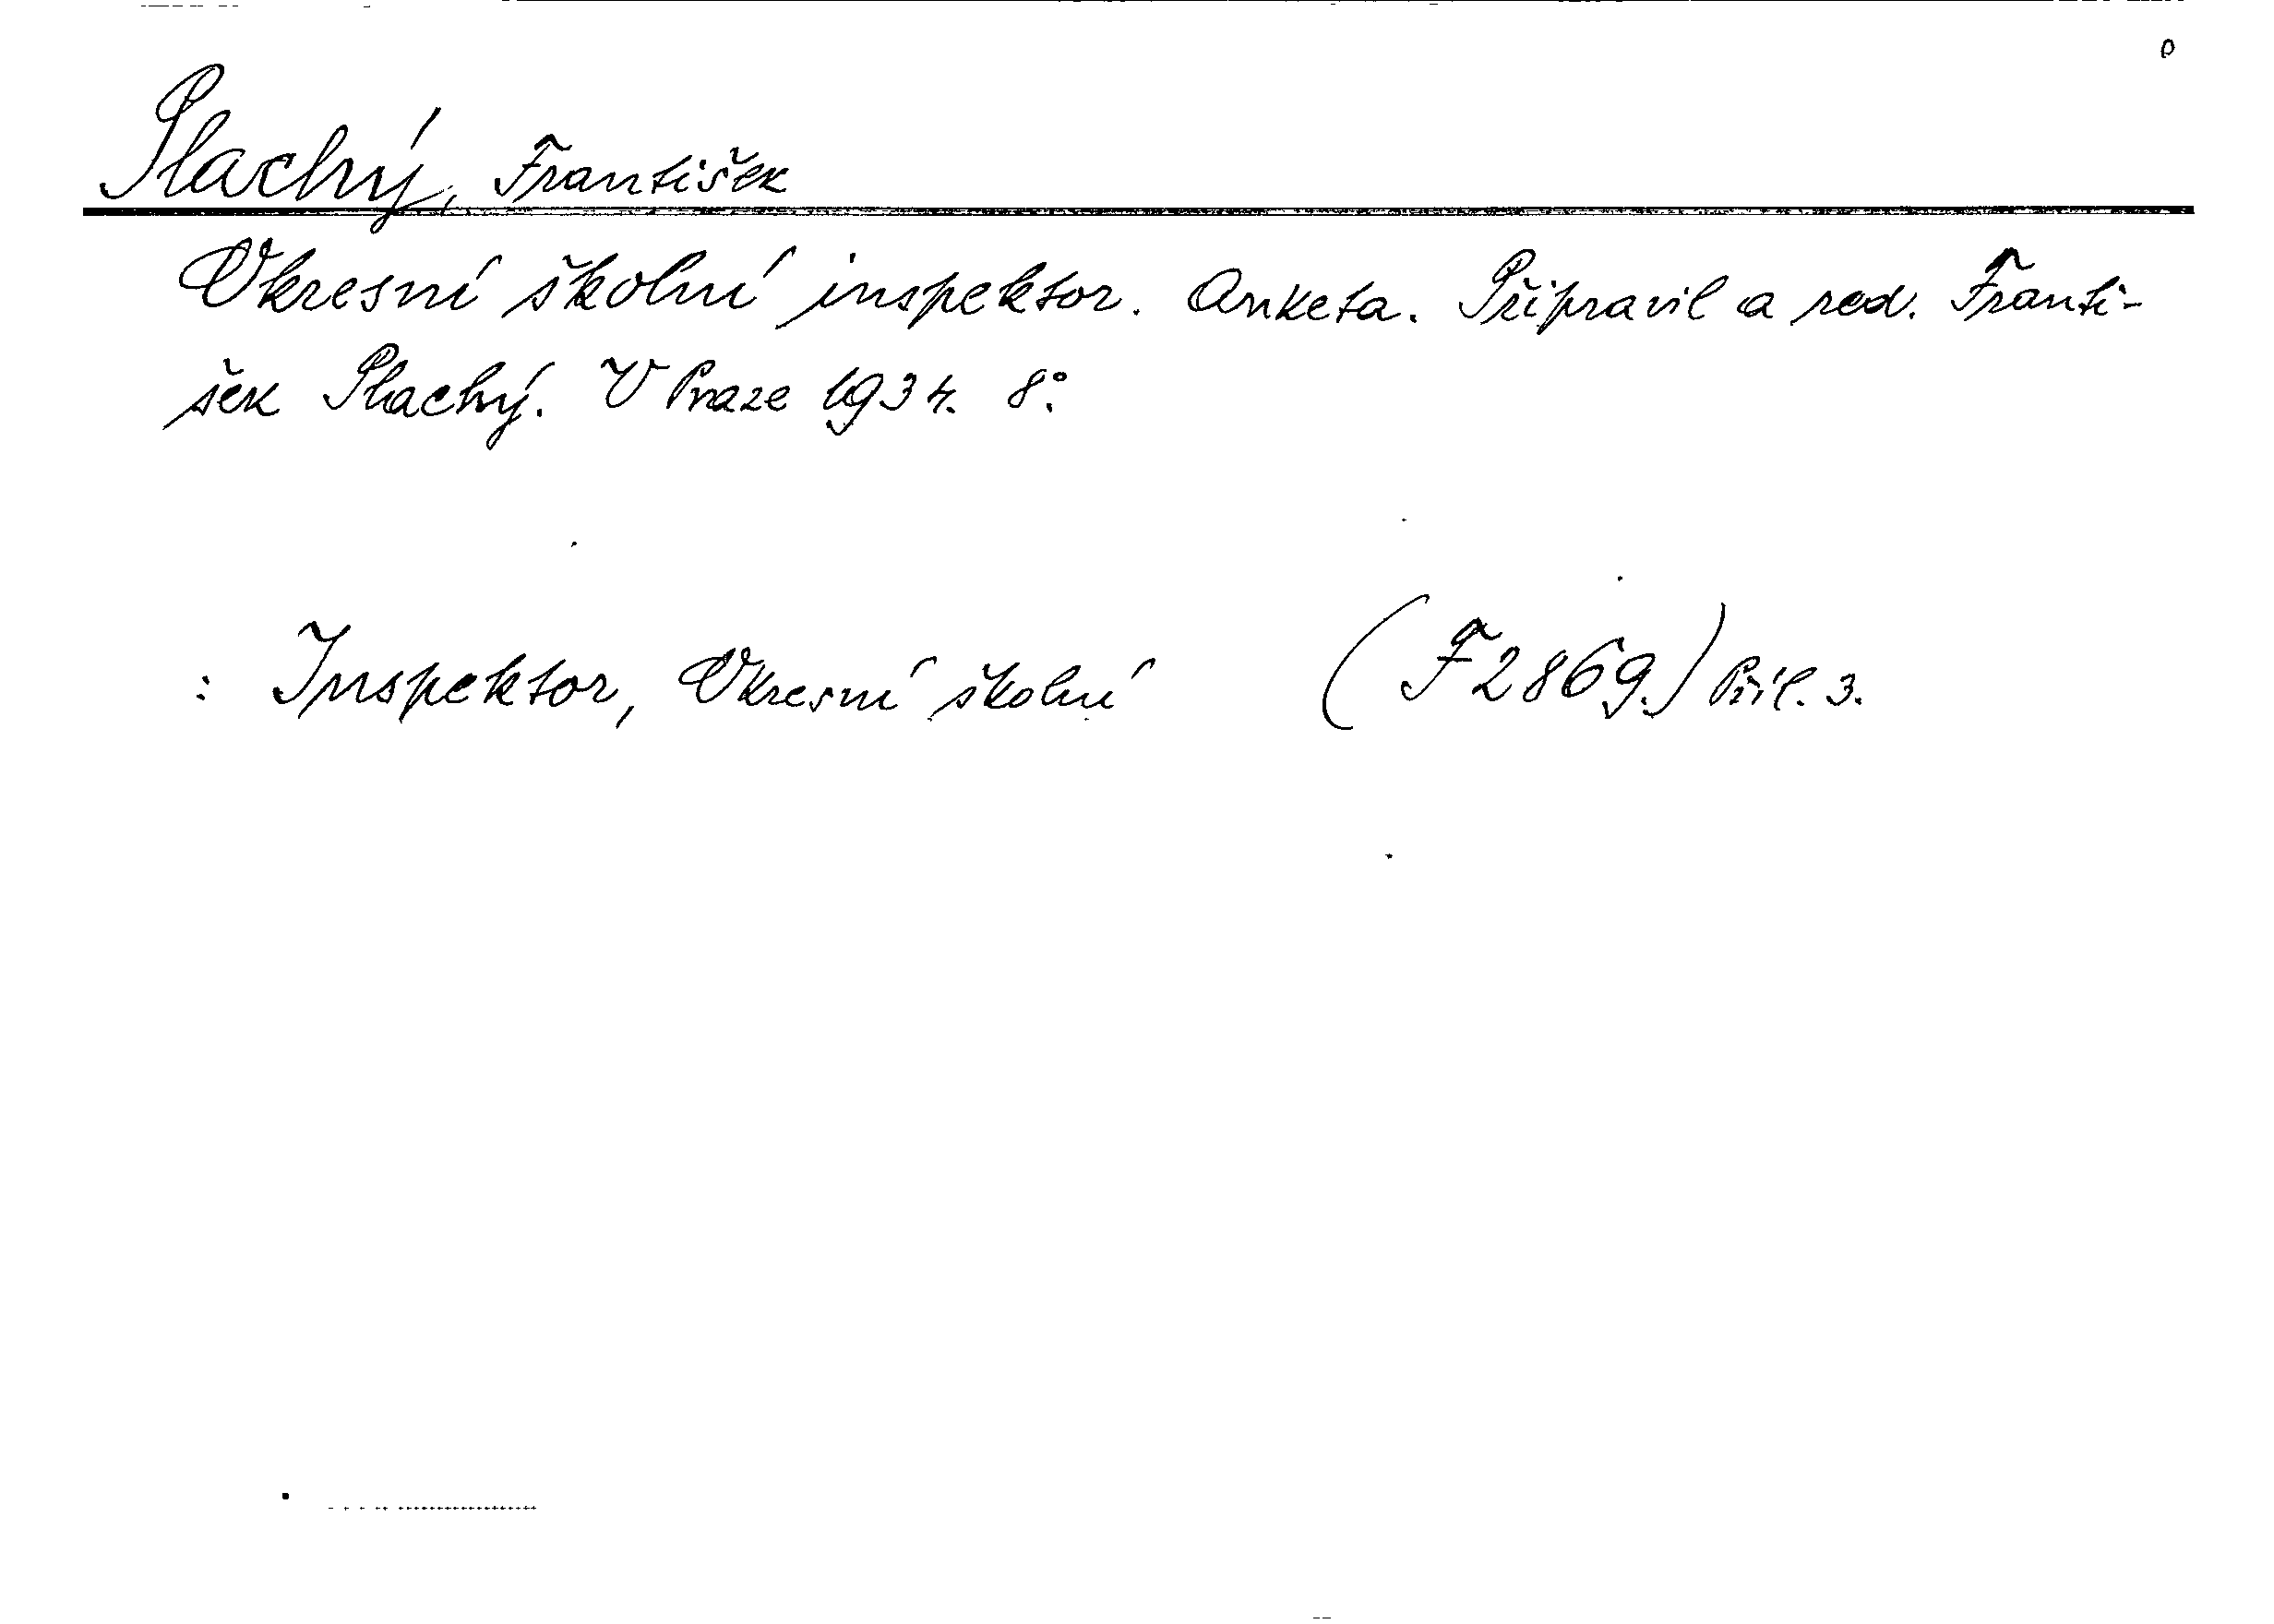 Plachý, František
Okresní školní inspektor. Anketa. Připravil a red. Franti-
šek Plachý. V Praze 1934. 8°.
: Inspektor, Okresní školní (F 2869.) Příl. 3.